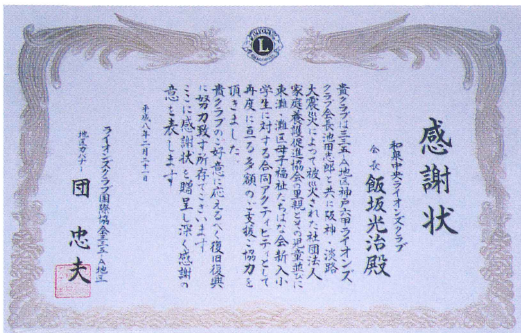 感謝状
和泉中央ライオンズクラブ
会長 飯坂光治殿
貴クラブは三三五-A地区神戸六甲ライオンズ
クラブ会長池田志郎と共に阪神・淡路
大震災によって被災された社団法人
家庭養護促進協会の里親とその児童並びに
東灘・灘区母子福祉たちばな会新入小
学生に対する合同アクティビティとして
再度に亘る多額のご支援ご協力を
頂きました。
貴クラブのご好意に応えるべく復旧復興
に努力致す所存でございます
ここに感謝状を贈呈し深く感謝の
意を表します
平成八年二月二十一日
ライオンズクラブ国際協会三三五-A地区
地区ガバナー 団 忠夫
LIONS
L